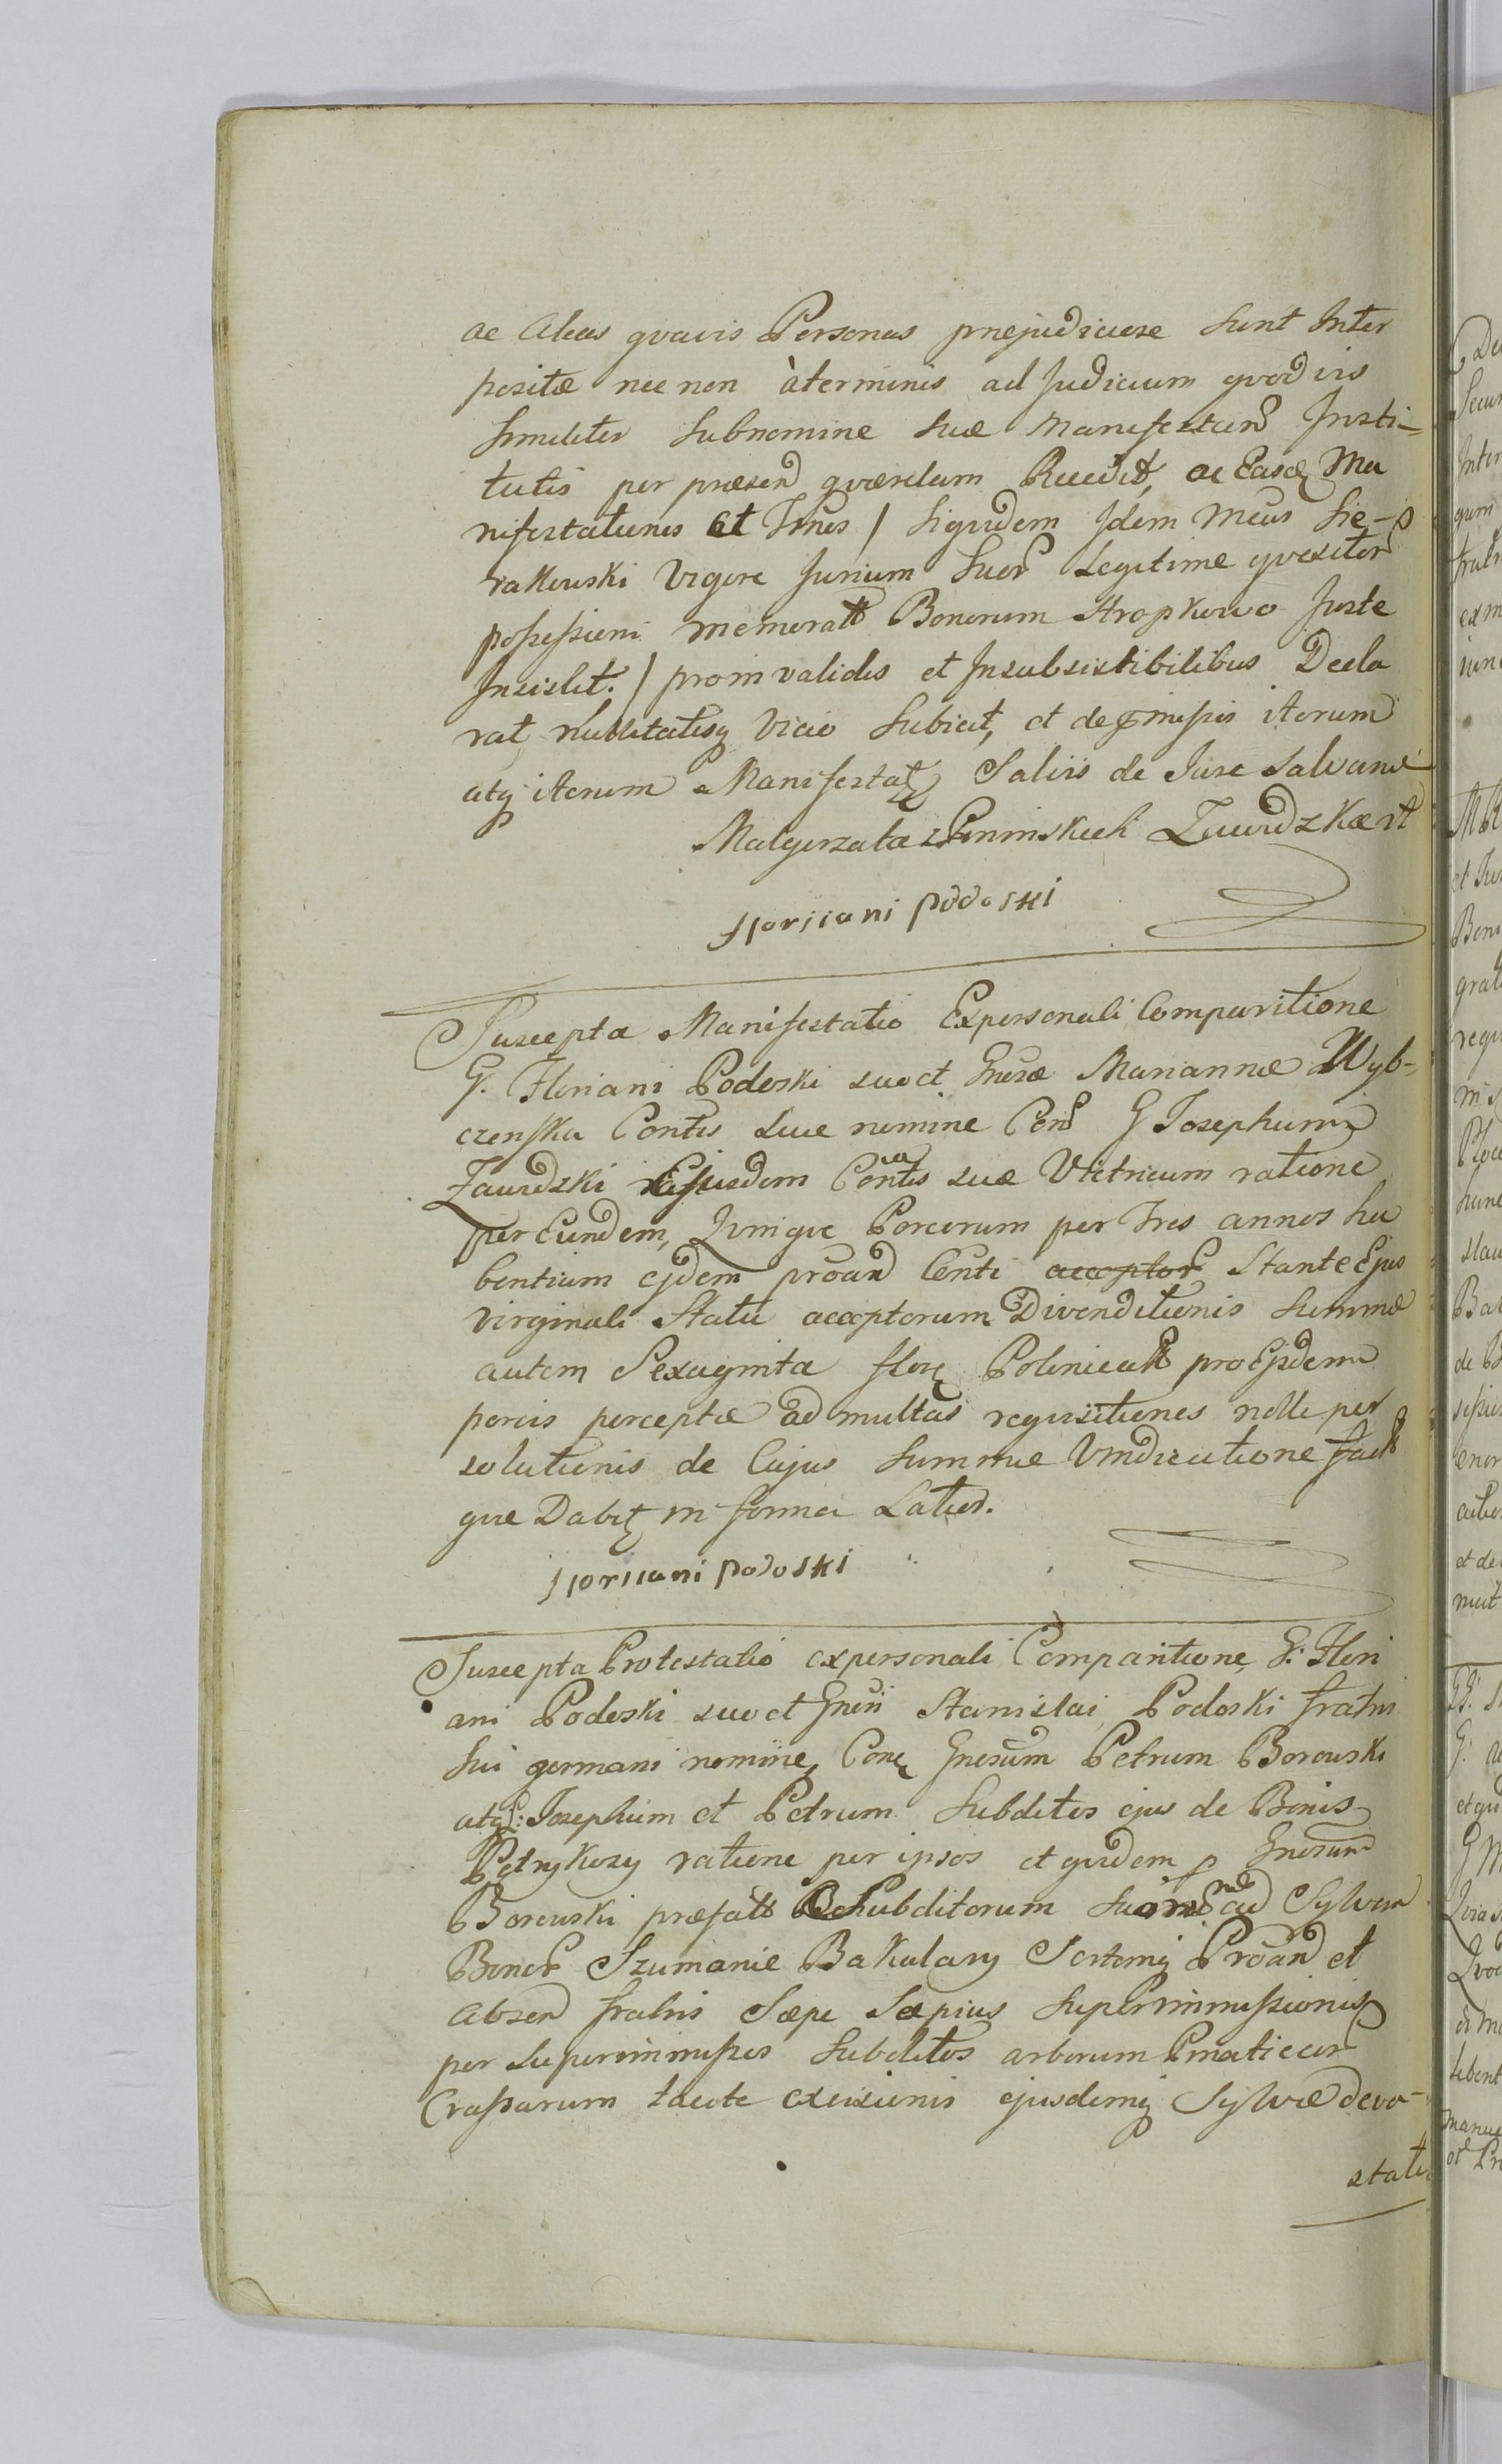 ac Alias qvavis Personas præjudiciose sunt Inter
positæ nec non àterminis ad Judicium qvodvis
similiter Subnomine suæ Manifestan Insti-
tutis per præsen qværelam Recedit, ac Easq Ma
nifestationes et Tmos / siqvidem Idem Mcus Sie-
rakowski vigore Jurium suor Legitime qvesitor
possessioni memoratt Bonorum Stropkowo Juste
Insistit. / proinvalidis et Insubsistibilibus Decla
rat nullitatisq vicio subicit, et de pmissis iterum
atq iterum Manifestat Salvis de Jure salvand
Malgorzata z Pininskich Zawidzka
Floriiani Podoski
Suscepta Manifestatio Expersonali Comparitione
G. Floriani Podoski suo et Gnosæ Mariannæ Wyb-
czenska Contis suæ nomine Con G Josephum
Zawidzki Ejusdem Contis suæ Vitricum ratione
per Eundem, Qvinqve Porcorum per Tres annos ha
bentium ejdem proan Conti acceptor Stante Ejus
virginali Statu acceptorum Divenditionis Summæ
autem Sexaginta flor Polonicatt pro Ejsdem
porcis perceptæ ad multas reqvisitiones nolle per
solutionis de Cujus Summæ Vindicatione fact
qve Dabit in forma Latior.
Floriiani Podoski
Suscepta Protestatio expersonali Comparitione, G. Flori
ani Podoski suo et Gnosi Stanislai Podoski fratris
sui germani nomine, Con Gnosum Petrum Borowski
atq L: Josephum et Petrum Subditos ejus de Bonis
Petrykozy ratione per ipsos et qvidem p Gnosum
Borowski præfatt Subditorum suor ad Sylvam
Bonor Szumanie Bakalary Sortemq Proan et
absen fratris Sæpe Sæpius Superimmissionis
per superimmissos Subditos arborum
Crassarum tacite excisionis ejusdemq Sylvæ deva-
statio